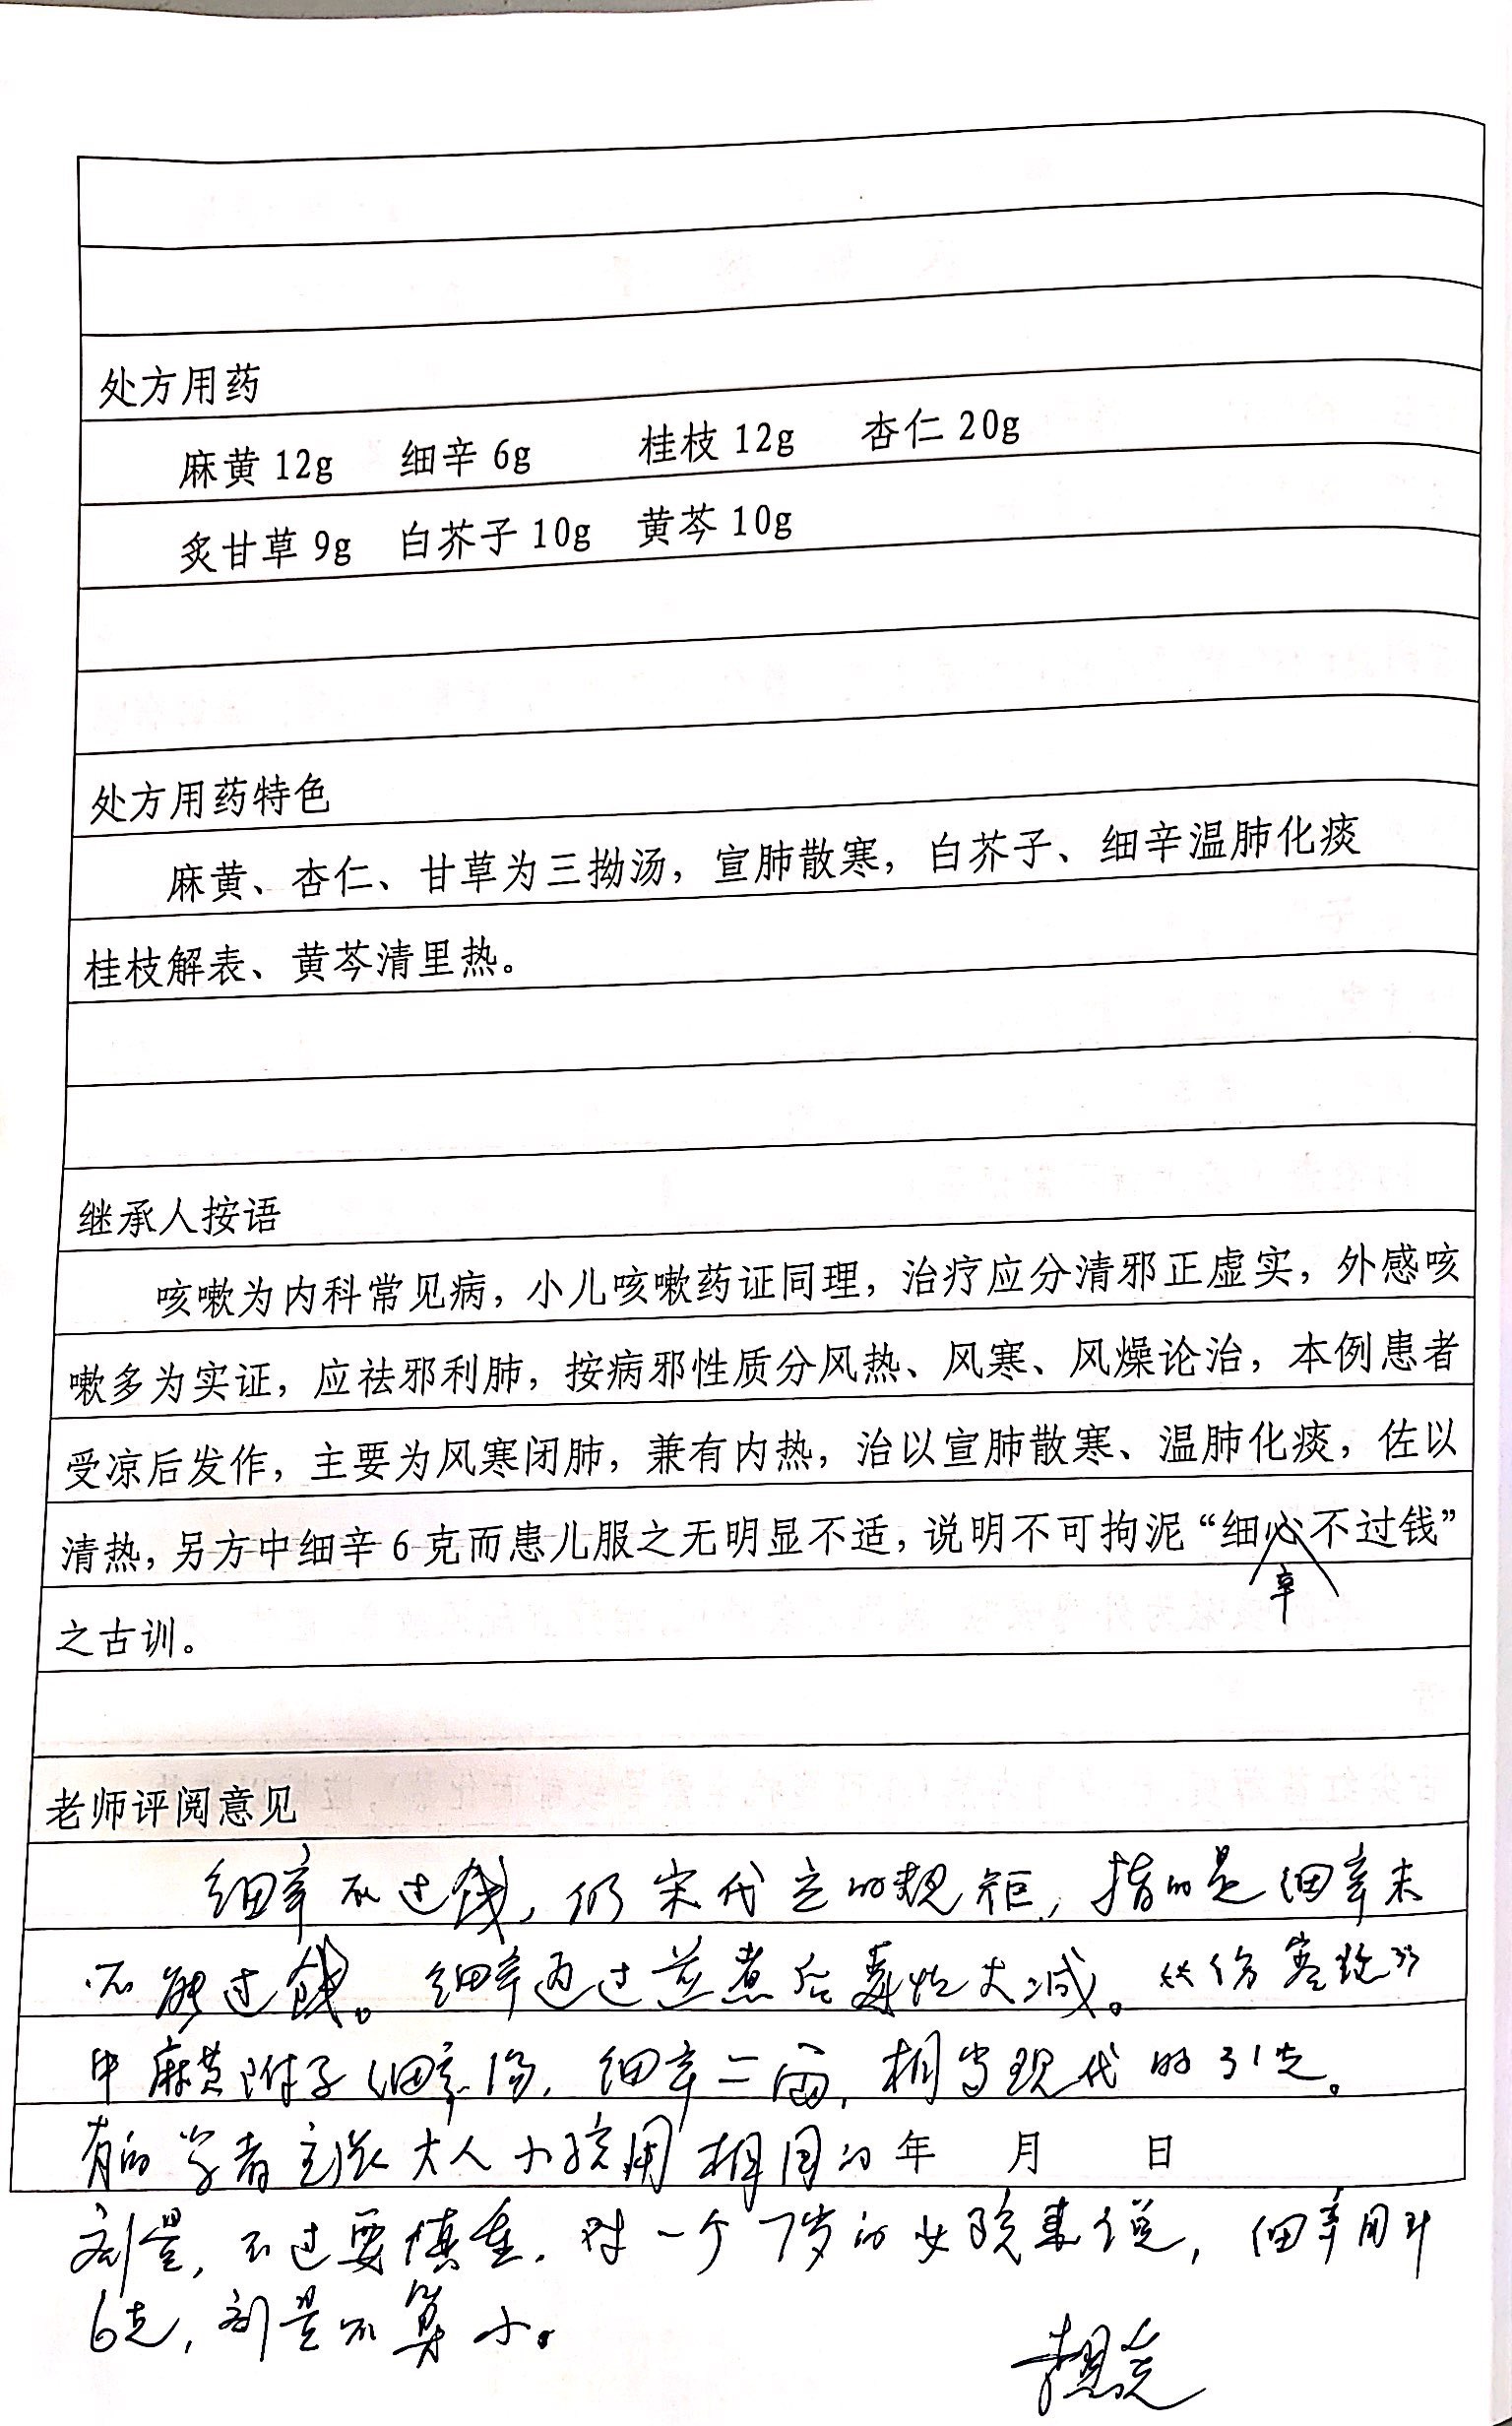 处方用药
麻黄 12g 细辛 6g 桂枝 12g 杏仁 20g
炙甘草 9g 白芥子 10g 黄芩 10g
处方用药特色
麻黄、杏仁、甘草为三拗汤，宣肺散寒，白芥子、细辛温肺化痰
桂枝解表、黄芩清里热。
继承人按语
咳嗽为内科常见病，小儿咳嗽药证同理，治疗应分清邪正虚实，外感咳
嗽多为实证，应祛邪利肺，按病邪性质分风热、风寒、风燥论治，本例患者
受凉后发作，主要为风寒闭肺，兼有内热，治以宣肺散寒、温肺化痰，佐以
清热，另方中细辛 6 克而患儿服之无明显不适，说明不可拘泥“细心不过钱”
辛
之古训。
老师评阅意见
细辛不过钱，仍宋代立的规矩，指的是细辛末
不能过钱。细辛通过煎煮后毒性大减。伤寒论
中麻黄附子细辛汤，细辛二两，相当现代的31克。
有的学者主张大人小孩用相同的 年 月 日
剂量，不过要慎重，对一个7岁的女孩来说，细辛用到
6克，剂量不算小。